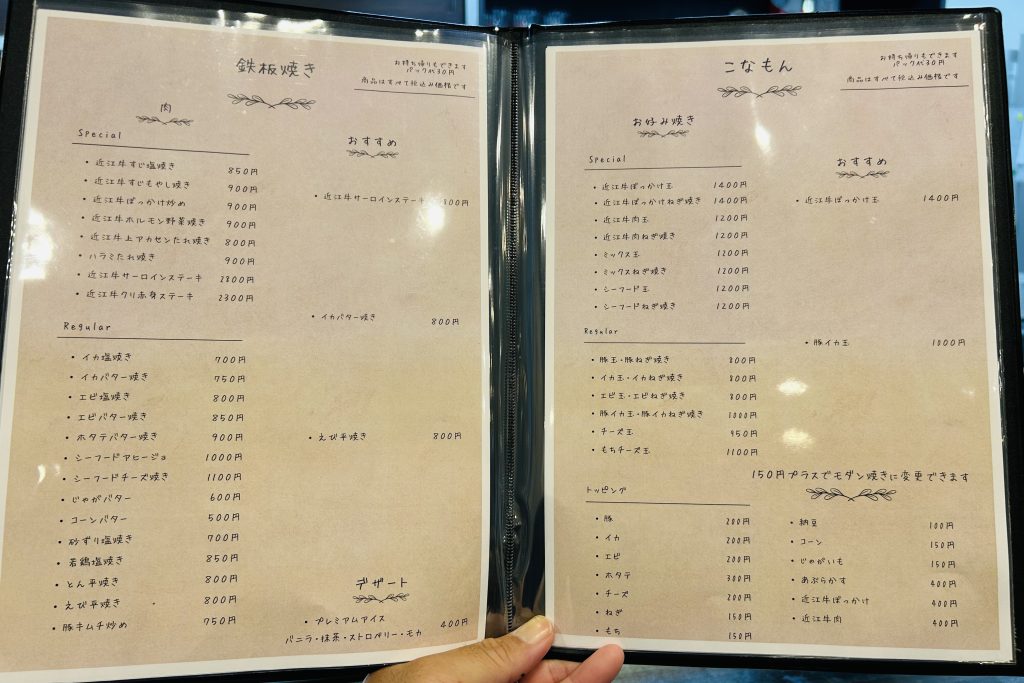 鉄板焼き
お持ち帰りもできます
パック代30円
商品はすべて税込み価格です
肉
Special
・近江牛すじ塩焼き 850円
・近江牛すじもやし焼き 900円
・近江牛ぼっかけ炒め 900円
・近江牛ホルモン野菜焼き 900円
・近江牛上アカセンたれ焼き 800円
・ハラミたれ焼き 900円
・近江牛サーロインステーキ 2800円
・近江牛クリ赤身ステーキ 2300円
Regular
・イカ塩焼き 700円
・イカバター焼き 750円
・エビ塩焼き 800円
・エビバター焼き 850円
・ホタテバター焼き 900円
・シーフードアヒージョ 1000円
・シーフードチーズ焼き 1100円
・じゃがバター 600円
・コーンバター 500円
・砂ずり塩焼き 700円
・若鶏塩焼き 850円
・とん平焼き 800円
・えび平焼き 800円
・豚キムチ炒め 750円
おすすめ
・近江牛サーロインステーキ 800円
・イカバター焼き 800円
・えび平焼き 800円
デザート
・プレミアムアイス 400円
バニラ・抹茶・ストロベリー・モカ
こなもん
お持ち帰りもできます
パック代30円
商品はすべて税込み価格です
お好み焼き
Special
・近江牛ぼっかけ玉 1400円
・近江牛ぼっかけねぎ焼き 1400円
・近江牛肉玉 1200円
・近江牛肉ねぎ焼き 1200円
・ミックス玉 1200円
・ミックスねぎ焼き 1200円
・シーフード玉 1200円
・シーフードねぎ焼き 1200円
Regular
・豚玉・豚ねぎ焼き 800円
・イカ玉・イカねぎ焼き 800円
・エビ玉・エビねぎ焼き 800円
・豚イカ玉・豚イカねぎ焼き 1000円
・チーズ玉 950円
・もちチーズ玉 1100円
おすすめ
・近江牛ぼっかけ玉 1400円
・豚イカ玉 1000円
150円プラスでモダン焼きに変更できます
トッピング
・豚 200円
・イカ 200円
・エビ 200円
・ホタテ 300円
・チーズ 200円
・ねぎ 150円
・もち 150円
・納豆 100円
・コーン 150円
・じゃがいも 150円
・あぶらかす 400円
・近江牛ぼっかけ 400円
・近江牛肉 400円